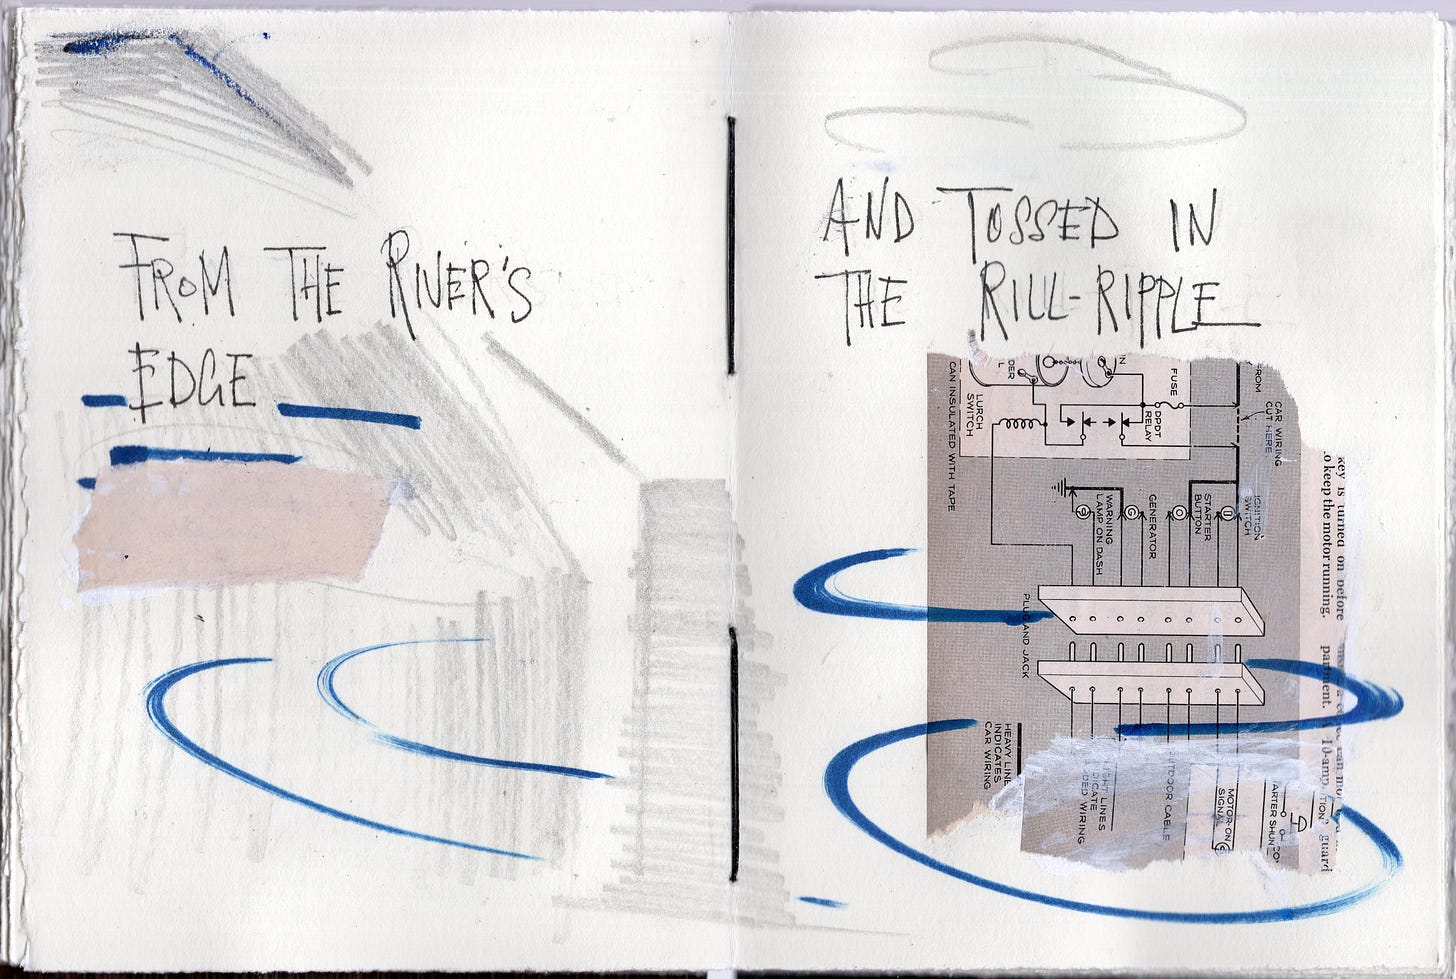 FROM THE RIVER'S
EDGE
AND TOSSED IN
THE RILL-RIPPLE
DER
IN
FUSE
FROM
CAR WIRING
CUT HERE
LURCH
SWITCH
DPDT
RELAY
CAN INSULATED WITH TAPE
WARNING
LAMP ON DASH
GENERATOR
STARTER
BUTTON
IGNITION
SWITCH
key is turned on before
to keep the motor running.
PLUG AND JACK
partment.
10-amp.
guard
HEAVY LINE
INDICATES
CAR WIRING
LIGHT LINES
INDICATE
ADDED WIRING
OUTDOOR CABLE
MOTOR-ON
SIGNAL
STARTER SHUN